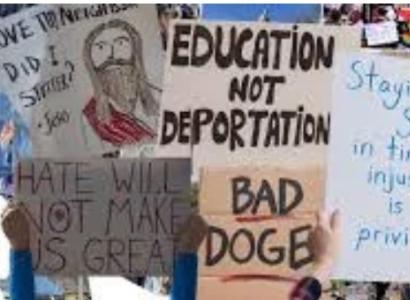 LOVE THY NEIGHBOR
DID I
STUTTER?
EDUCATION
NOT
DEPORTATION
HATE WILL
NOT MAKE
US GREAT
BAD
DOGE
Stayi
in ti
inju
is
privi